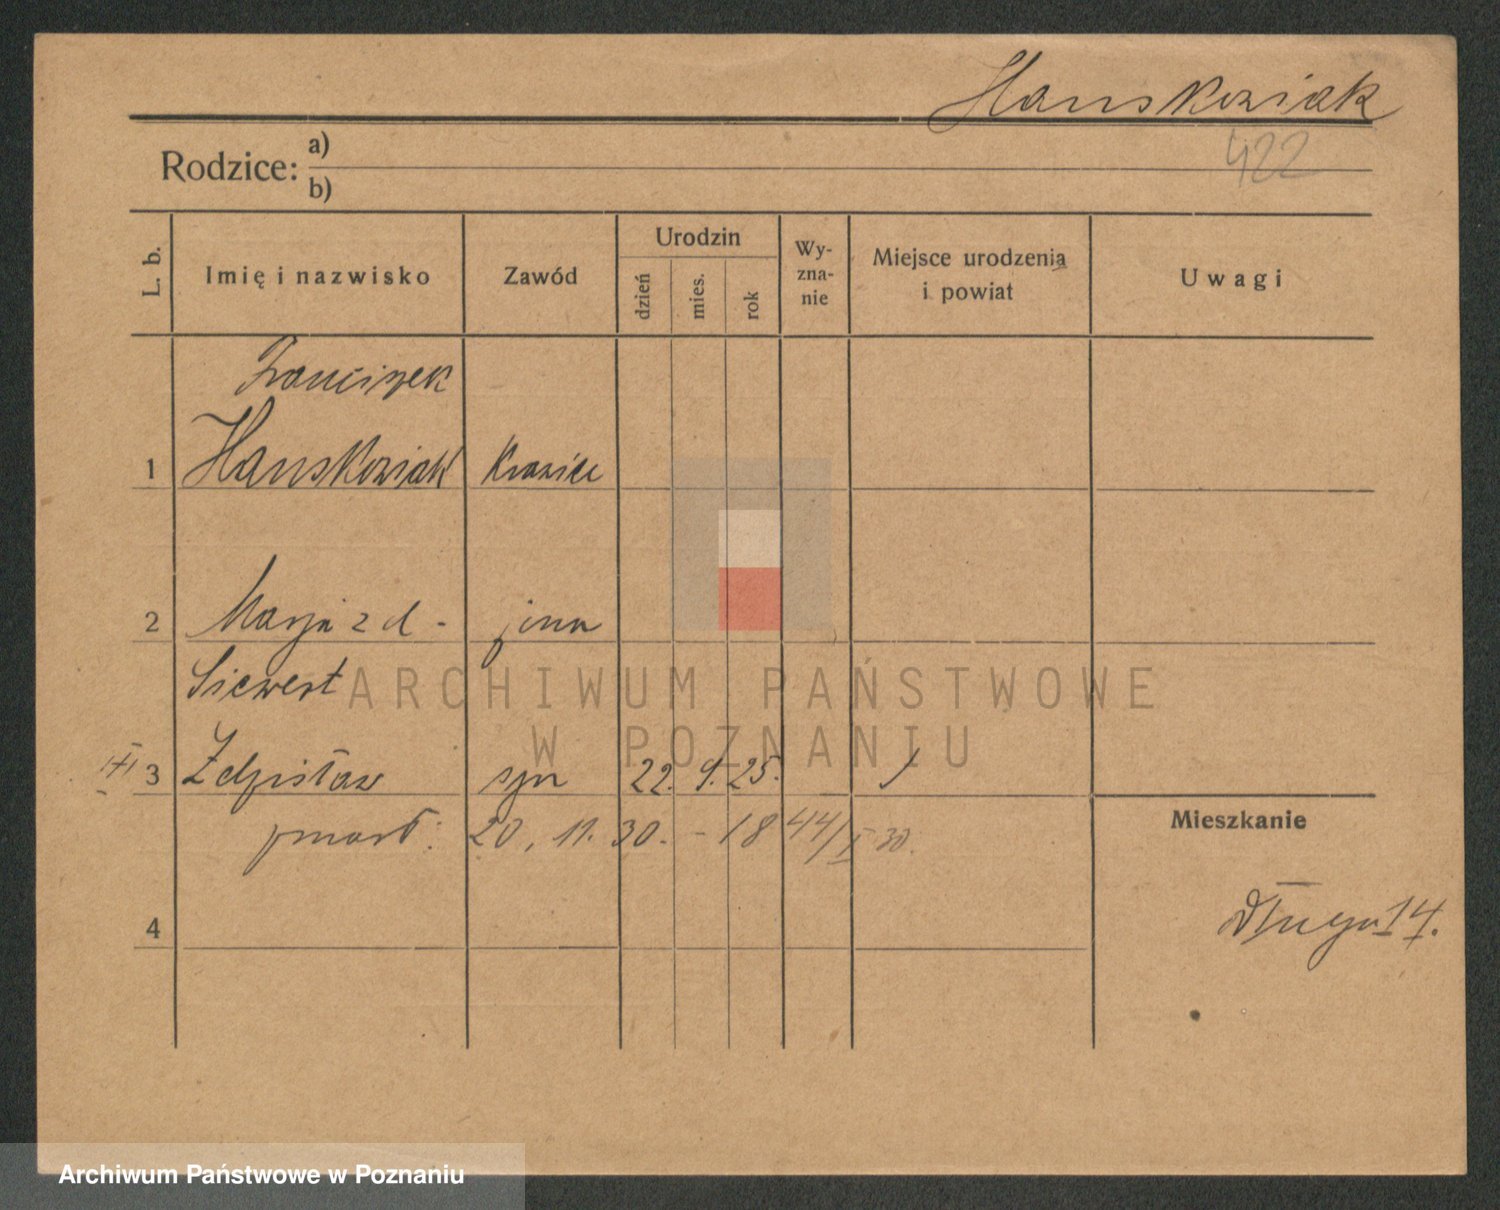 Hanskowiak
422
Rodzice: a)
b)
L. b. Imię i nazwisko Zawód Urodzin dzień mies. rok Wy-zna-nie Miejsce urodzenia i powiat Uwagi
Franciszek
1 Hanskowiak
2 Marja z d. żona
Siewert
3 Zdzisław syn 22. 9. 25.
zmarł: 20. 11. 30. - 1844/I 30.
Mieszkanie
4 Długa 14.
ARCHIWUM PAŃSTWOWE
W POZNANIU
Archiwum Państwowe w Poznaniu